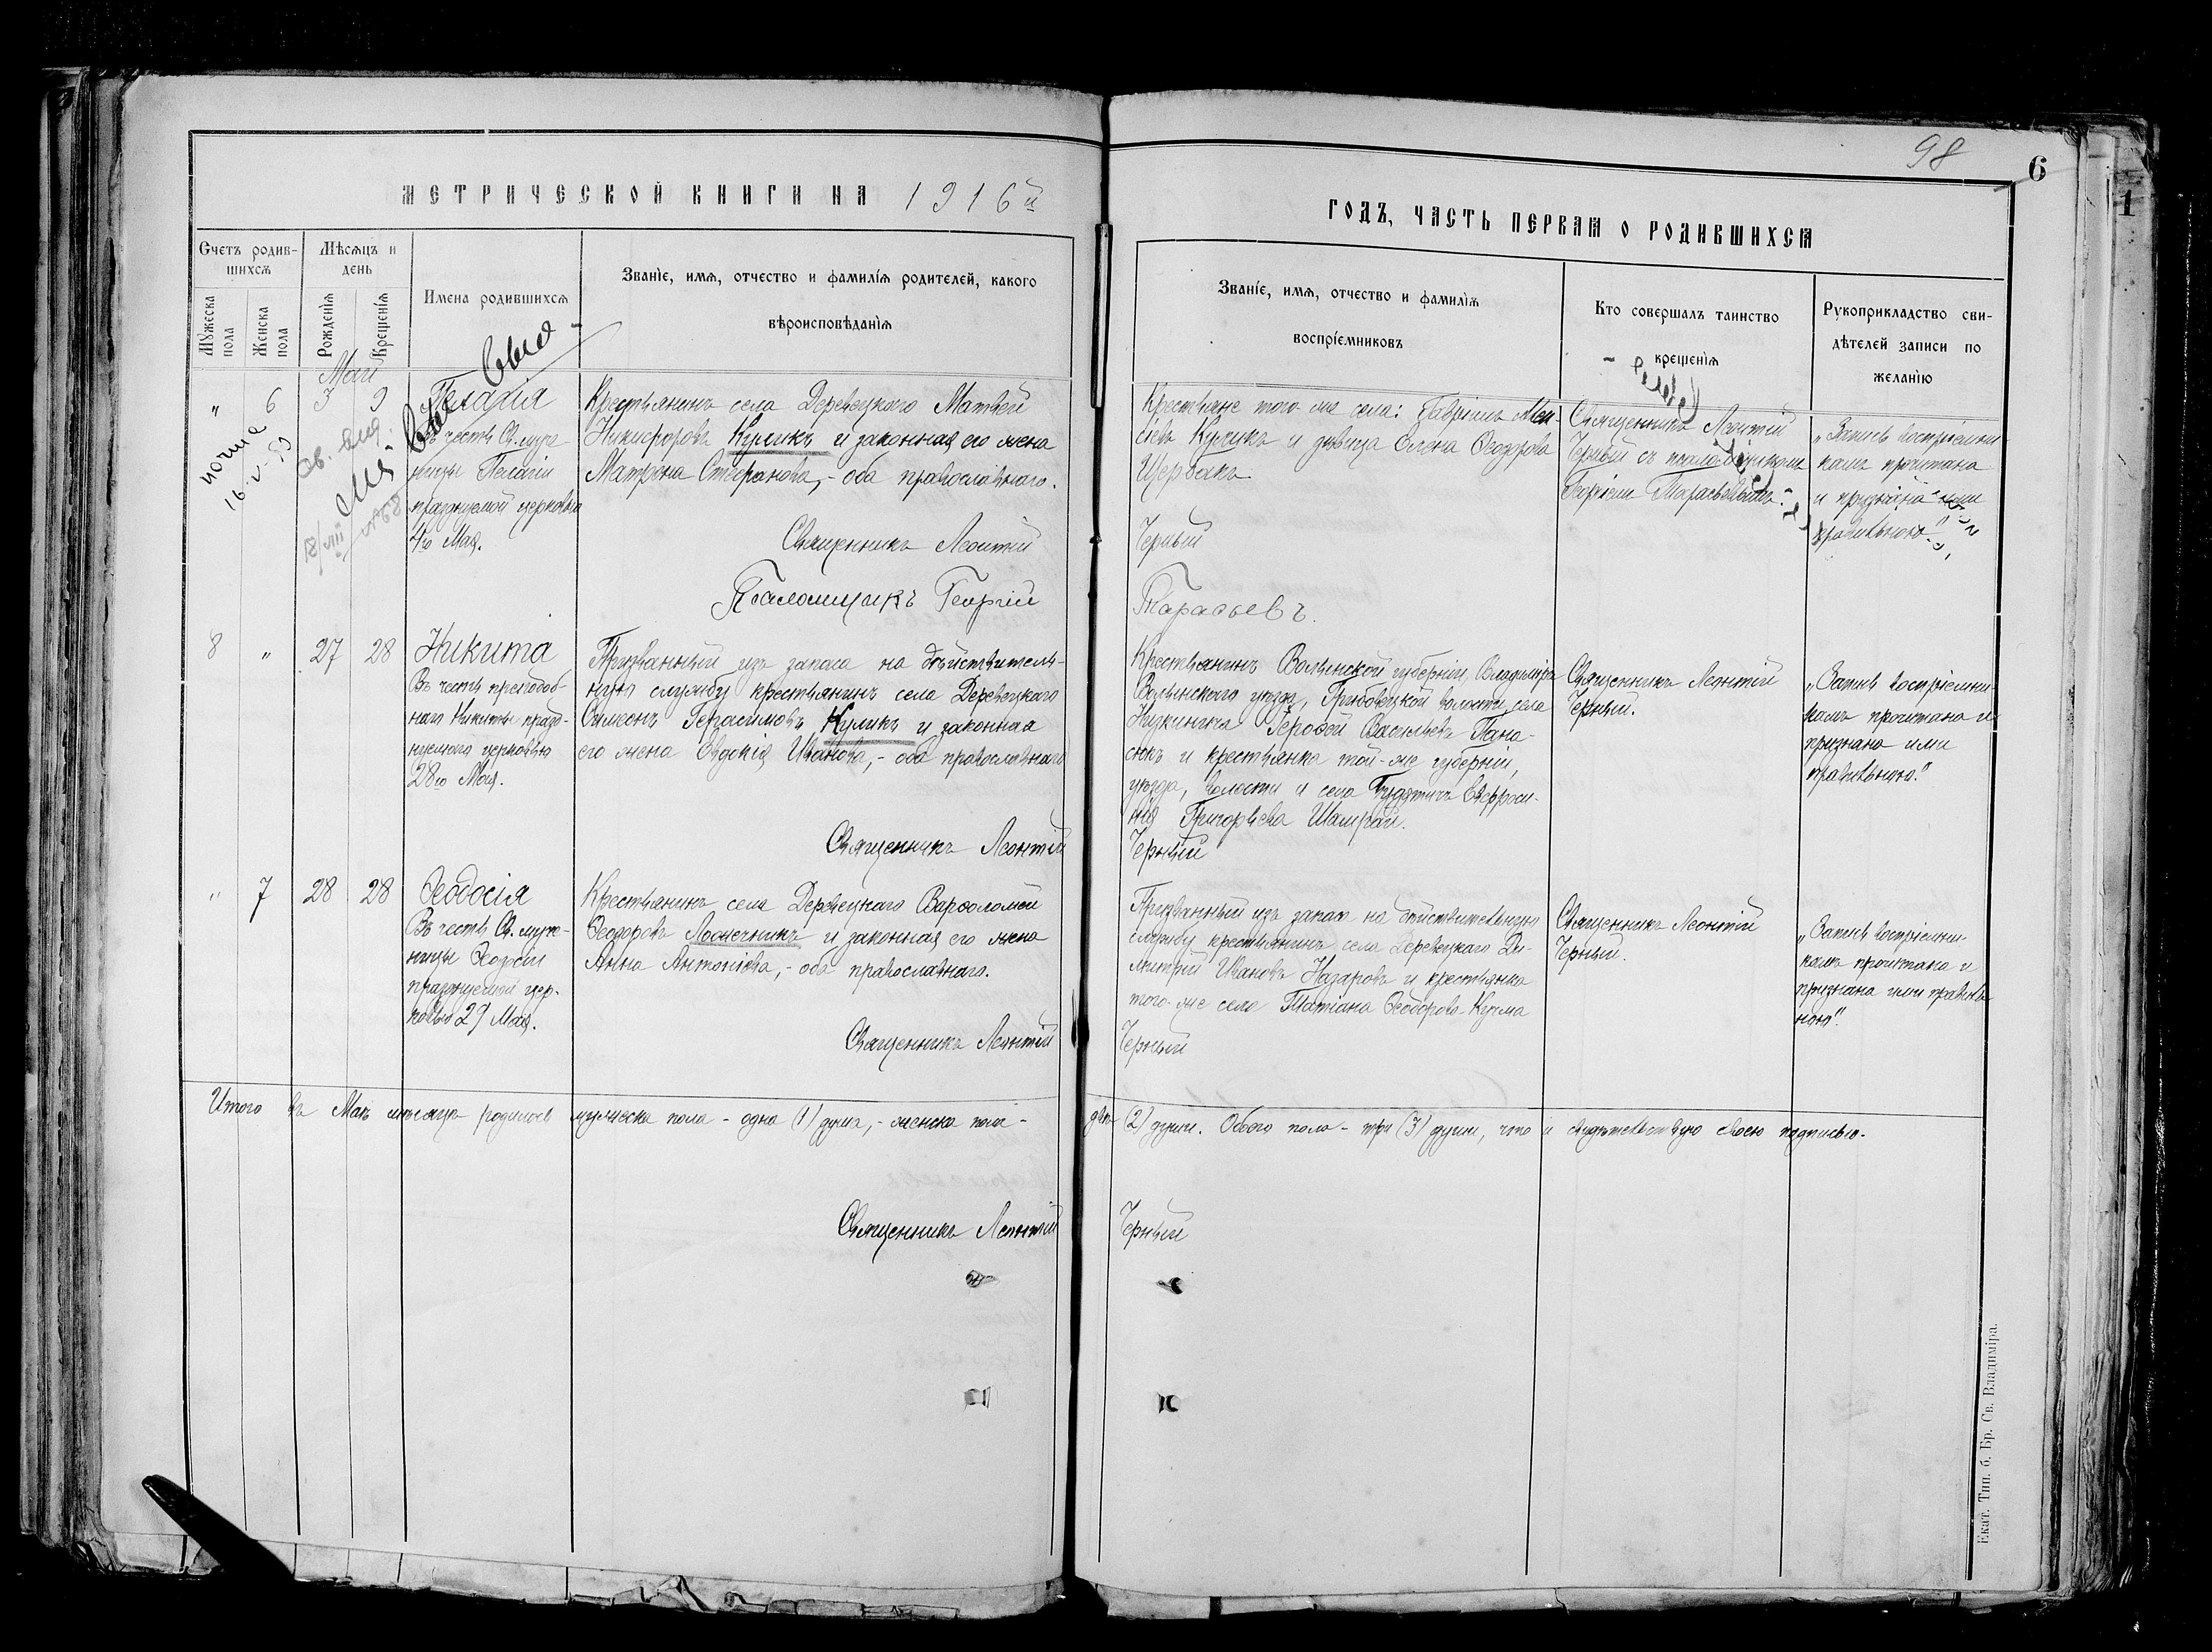 98
6
МЕТРИЧЕСКОЙ КНИГИ НА 1916й
ГОДЪ, ЧАСТЬ ПЕРВАЯ О РОДИВШИХСЯ
Счетъ родив-
шихся
Мужеска
пола
Женска
пола
Мѣсяцъ и
день
Рожденія
Крещенія
Имена родившихся
Званіе, имя, отчество и фамилія родителей, какого
вѣроисповѣданія
Званіе, имя, отчество и фамилія
воспріемниковъ
Кто совершалъ таинство
крещенія
Рукоприкладство сви-
дѣтелей записи по
желанію
Май
" 6 3 9
Пелагія
въ честь Св. муче-
ницы Пелагіи
празднуемой церковью
4го Мая.
Крестьянинъ села Деревецкаго Матвей
Никифоровъ Куликъ и законная его жена
Матрона Стефанова,- оба православнаго.
Священникъ Леонтій
Псаломщикъ Георгій
Крестьяне того-же села: Гавріилъ
Куликъ и дѣвица Елена Ѳеодорова
Щербакъ.
Черный
Тарасьевъ.
Священникъ Леонтій
Черный съ псаломщикомъ
Георгіемъ Тарасьевымъ.
"Запись воспріемни-
камъ прочитана
и признана ими
правильною."
16-V-53
8 " 27 28
Никита
Въ честь преподоб-
наго Никиты празд-
нуемаго церковью
28го Мая.
Призванный изъ запаса на дѣйствитель-
ную службу крестьянинъ села Деревецкаго
Симеонъ Герасимовъ Куликъ и законная
его жена Евдокія Иванова,- оба православнаго
Священникъ Леонтій
Крестьянинъ Волынской губерніи, Владиміръ
Волынскаго уѣзда, Грибовецкой волости, села
Іерофей Васильевъ Пана-
сюкъ и крестьянка той-же губерніи,
уѣзда, волости и села Евфроси-
нія Григорьева
Черный
Священникъ Леонтій
Черный.
"Запись воспріемни-
камъ прочитана и
признана ими
правильною."
" 7 28 28
Ѳеодосія
Въ честь Св. муче-
ницы Ѳеодосіи
празднуемой цер-
ковью 29 Мая.
Крестьянинъ села Деревецкаго Варѳоломей
Ѳеодоровъ и законная его жена
Анна Антоніева,- оба православнаго.
Священникъ Леонтій
Призванный изъ запаса на дѣйствительную
службу крестьянинъ села Деревецкаго Ди-
митрій Ивановъ Назаровъ и крестьянка
того-же села Татіана Ѳеодорова Кучма
Черный
Священникъ Леонтій
Черный.
"Запись воспріемни-
камъ прочитана и
признана ими правиль-
ною".
Итого въ Маѣ мѣсяцѣ родилось мужеска пола - одна (1) душа,- женска пола - двѣ (2) души. Обоего пола - три (3) души, что и свидѣтельствую своею подписью.
Священникъ Леонтій Черный
Екат. Тип. б. Бр. Св. Владиміра.
1